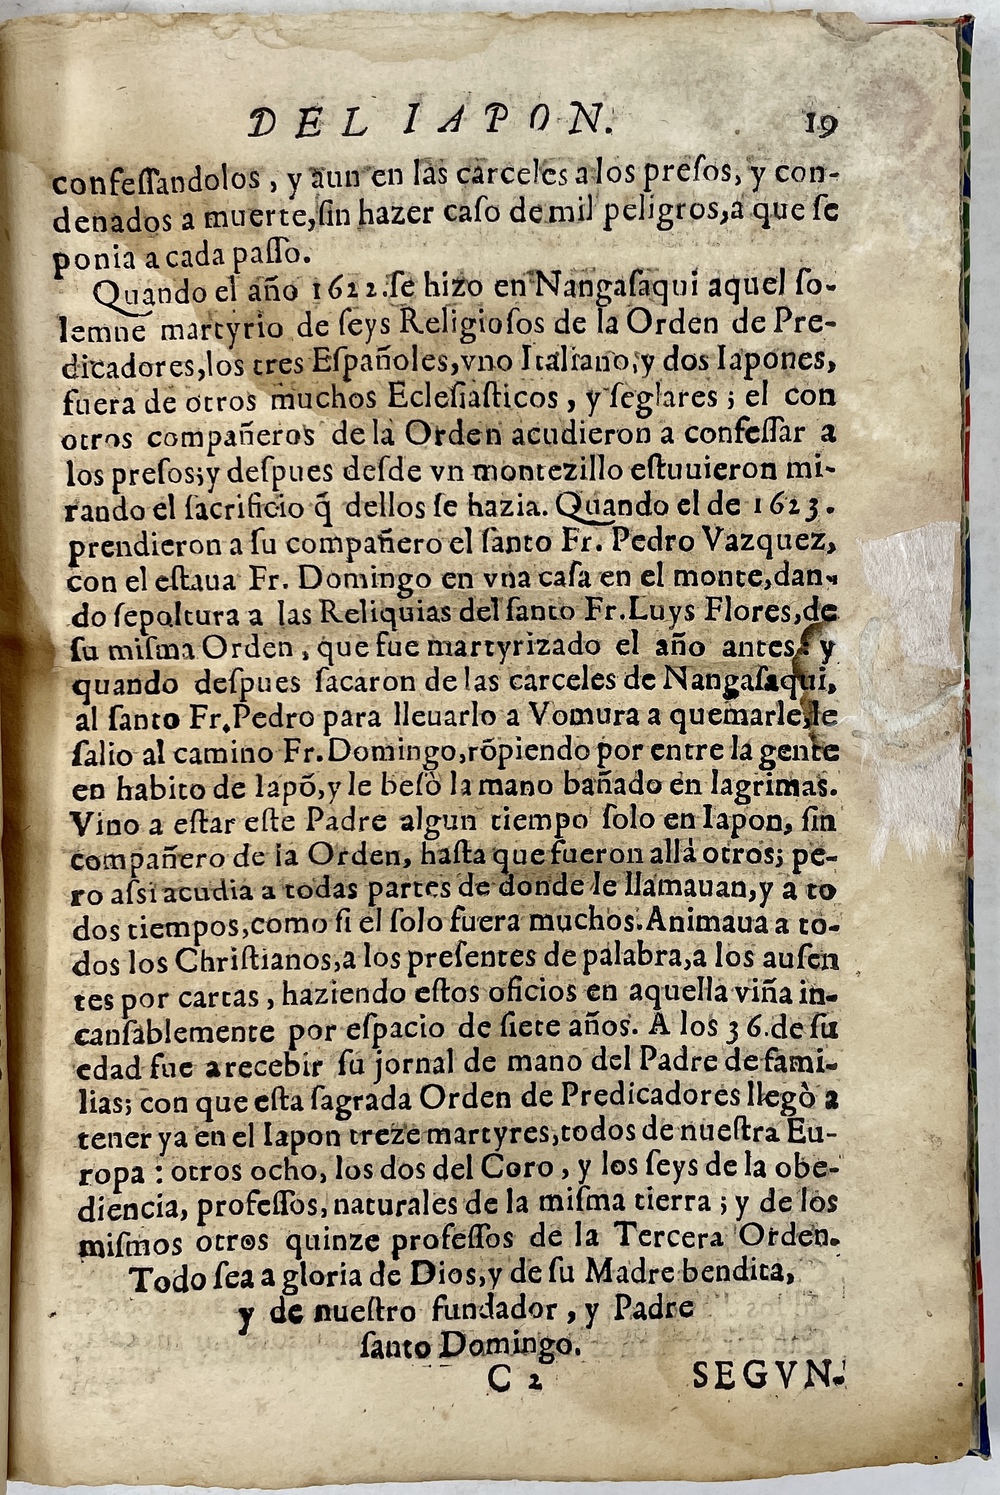 DEL IAPON. 19
confeſſandolos, y aun en las carceles a los preſos, y con-
denados a muerte, ſin hazer caſo de mil peligros, a que ſe
ponia a cada paſſo.
Quando el año 1622. ſe hizo en Nangaſaqui aquel ſo-
lemne martyrio de ſeys Religioſos de la Orden de Pre-
dicadores, los tres Eſpañoles, vno Italiano, y dos Iapones,
fuera de otros muchos Ecleſiaſticos, y ſeglares; el con
otros compañeros de la Orden acudieron a confeſſar a
los preſos; y deſpues deſde vn montezillo eſtuuieron mi-
rando el ſacrificio q̃ dellos ſe hazia. Quando el de 1623.
prendieron a ſu compañero el ſanto Fr. Pedro Vazquez,
con el eſtaua Fr. Domingo en vna caſa en el monte, dan-
do ſepoltura a las Reliquias del ſanto Fr. Luys Flores, de
ſu miſma Orden, que fue martyrizado el año antes: y
quando deſpues ſacaron de las carceles de Nangaſaqui,
al ſanto Fr. Pedro para lleuarlo a Vomura a quemarle, le
ſalio al camino Fr. Domingo, rõpiendo por entre la gente
en habito de Iapõ, y le beſò la mano bañado en lagrimas.
Vino a eſtar eſte Padre algun tiempo ſolo en Iapon, ſin
compañero de la Orden, haſta que fueron allà otros; pe-
ro aſsi acudia a todas partes de donde le llamauan, y a to
dos tiempos, como ſi el ſolo fuera muchos. Animaua a to-
dos los Chriſtianos, a los preſentes de palabra, a los auſen
tes por cartas, haziendo eſtos oficios en aquella viña in-
canſablemente por eſpacio de ſiete años. A los 36. de ſu
edad fue a recebir ſu jornal de mano del Padre de fami-
lias; con que eſta ſagrada Orden de Predicadores llegò a
tener ya en el Iapon treze martyres, todos de nueſtra Eu-
ropa: otros ocho, los dos del Coro, y los ſeys de la obe-
diencia, profeſſos, naturales de la miſma tierra; y de los
miſmos otros quinze profeſſos de la Tercera Orden.
Todo ſea a gloria de Dios, y de ſu Madre bendita,
y de nueſtro fundador, y Padre
ſanto Domingo.
C 2 SEGVN-